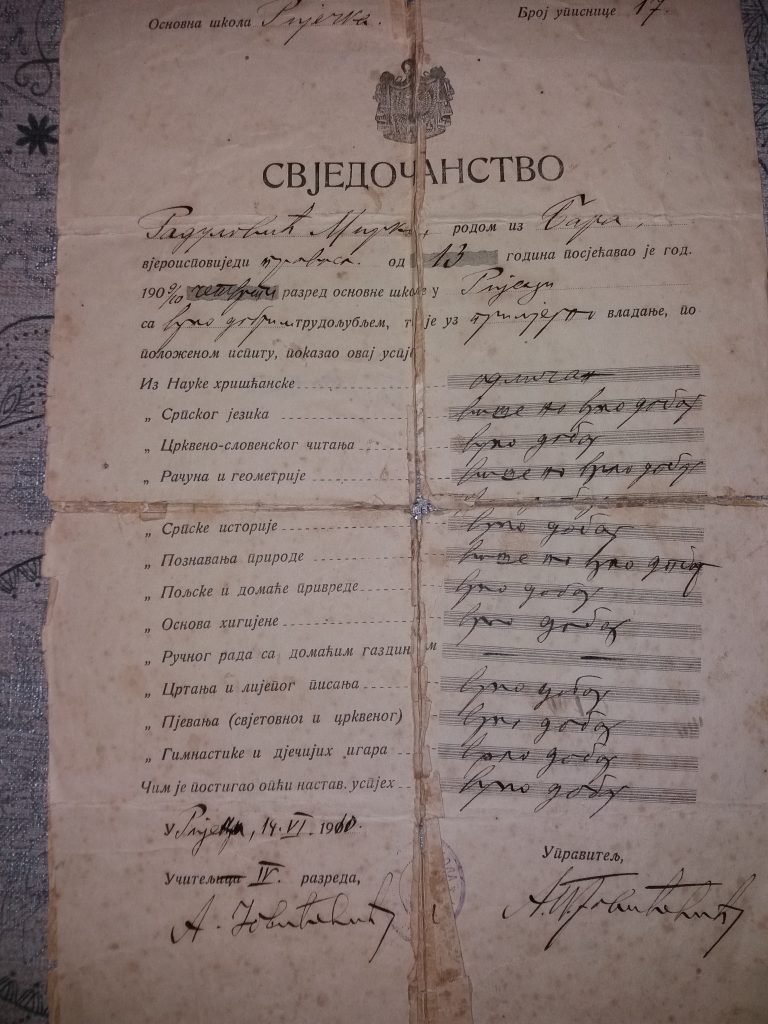 Основна школа Ријечка. Број уписнице 17.
СВЈЕДОЧАНСТВО
Радуловић Мирко, родом из Бара,
вјероисповиједи правосл. од 13 година посјећавао је год.
1909/10 четврти разред основне школе у Ријеци
са врло добрим трудољубљем, те је уз примјерно владање, по
положеном испиту, показао овај успјех
Из Науке хришћанске одличан
„ Српског језика више но врло добар
„ Црквено-словенског читања врло добар
„ Рачуна и геометрије више но врло добар
„ Српске историје врло добар
„ Познавања природе више но врло добар
„ Пољске и домаће привреде врло добар
„ Основа хигијене врло добар
„ Ручног рада са домаћим газдин м —  —
„ Цртања и лијепог писања врло добар
„ Пјевања (свјетовног и црквеног) врло добар
„ Гимнастике и дјечијих игара врло добар
Чим је постигао опћи настав. успјех врло добар
У Ријеци, 14. VI. 1910.
Управитељ,
Учитељица IV. разреда,
А. Јовићевић